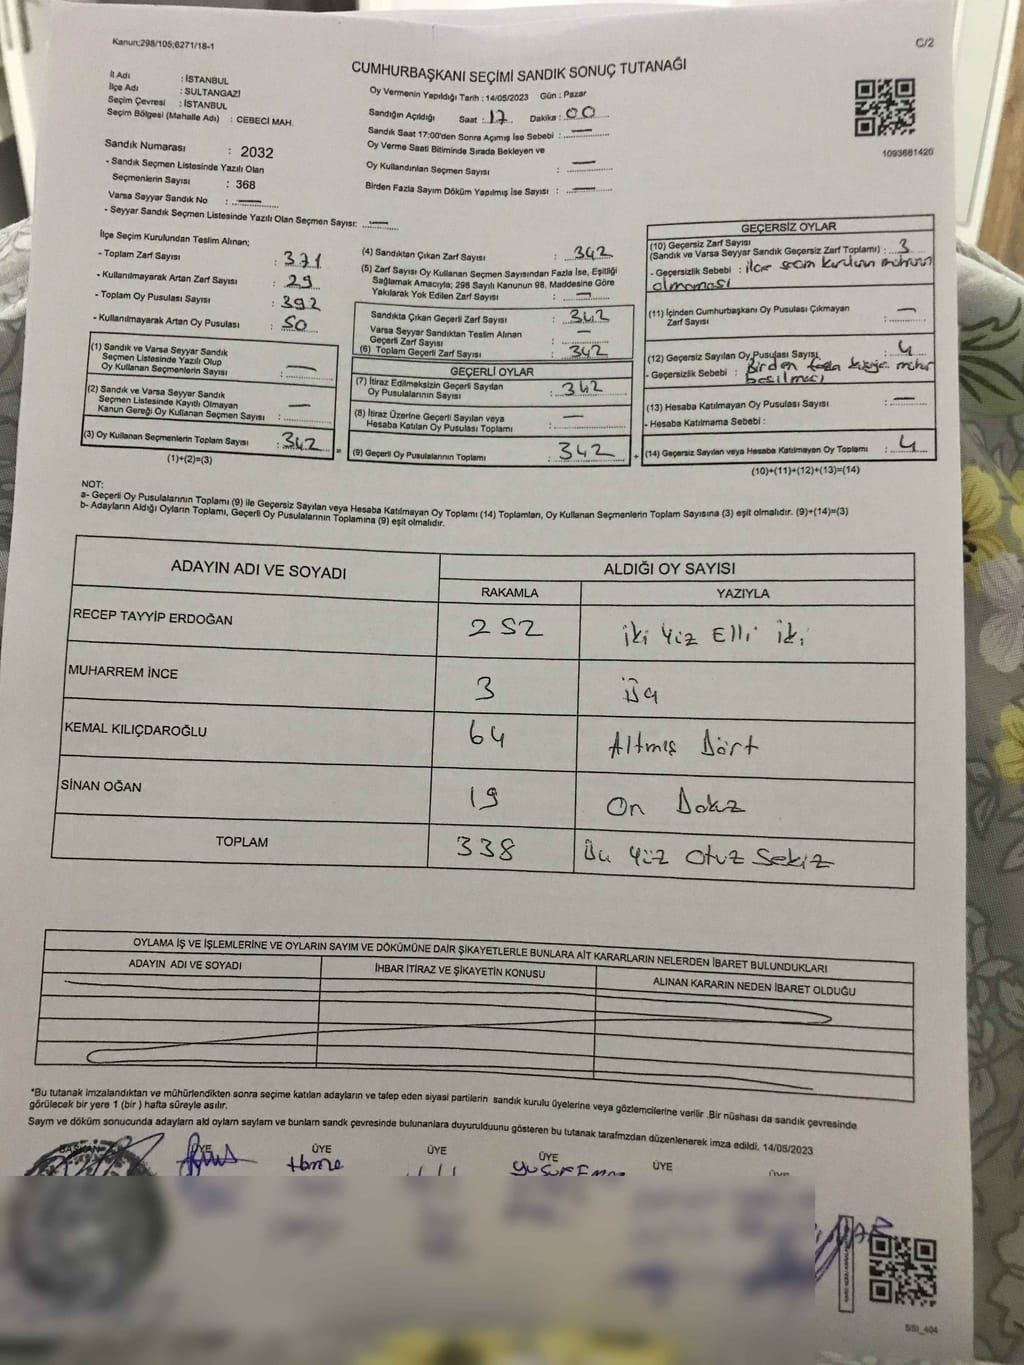 Kanun;298/105;6271/18-1
C/2
CUMHURBAŞKANI SEÇİMİ SANDIK SONUÇ TUTANAĞI
İl Adı : İSTANBUL
İlçe Adı : SULTANGAZİ
Seçim Çevresi : İSTANBUL
Seçim Bölgesi (Mahalle Adı) : CEBECİ MAH.
Oy Vermenin Yapıldığı Tarih : 14/05/2023 Gün : Pazar
Sandığın Açıldığı Saat : 17 Dakika : 00
Sandık Saat 17:00'den Sonra Açımış İse Sebebi : —
Oy Verme Saati Bitiminde Sırada Bekleyen ve
Oy Kullandırılan Seçmen Sayısı : —
Birden Fazla Sayım Döküm Yapılmış İse Sayısı : —
1093681420
Sandık Numarası : 2032
- Sandık Seçmen Listesinde Yazılı Olan
Seçmenlerin Sayısı : 368
Varsa Seyyar Sandık No : —
- Seyyar Sandık Seçmen Listesinde Yazılı Olan Seçmen Sayısı: —
İlçe Seçim Kurulundan Teslim Alınan;
- Toplam Zarf Sayısı : 371
- Kullanılmayarak Artan Zarf Sayısı : 29
- Toplam Oy Pusulası Sayısı : 392
- Kullanılmayarak Artan Oy Pusulası : 50
(1) Sandık ve Varsa Seyyar Sandık
Seçmen Listesinde Yazılı Olup
Oy Kullanan Seçmenlerin Sayısı : —
(2) Sandık ve Varsa Seyyar Sandık
Seçmen Listesinde Kayıtlı Olmayan
Kanun Gereği Oy Kullanan Seçmen Sayısı : —
(3) Oy Kullanan Seçmenlerin Toplam Sayısı : 342
(1)+(2)=(3)
(4) Sandıktan Çıkan Zarf Sayısı : 342
(5) Zarf Sayısı Oy Kullanan Seçmen Sayısından Fazla İse, Eşitliği
Sağlamak Amacıyla; 298 Sayılı Kanunun 98. Maddesine Göre
Yakılarak Yok Edilen Zarf Sayısı : —
Sandıkta Çıkarılan Geçerli Zarf Sayısı : 342
Varsa Seyyar Sandıktan Teslim Alınan
Geçerli Zarf Sayısı : —
(6) Toplam Geçerli Zarf Sayısı : 342
GEÇERLİ OYLAR
(7) İtiraz Edilmeksizin Geçerli Sayılan
Oy Pusulalarının Sayısı : 342
(8) İtiraz Üzerine Geçerli Sayılan veya
Hesaba Katılan Oy Pusulası Toplamı : —
= (9) Geçerli Oy Pusulalarının Toplamı : 342
GEÇERSİZ OYLAR
(10) Geçersiz Zarf Sayısı
(Sandık ve Varsa Seyyar Sandık Geçersiz Zarf Toplamı) : 3
- Geçersizlik Sebebi : ilçe seçim kurulunun mührünün
olmaması
(11) İçinden Cumhurbaşkanı Oy Pusulası Çıkmayan
Zarf Sayısı : —
(12) Geçersiz Sayılan Oy Pusulası Sayısı : 4
- Geçersizlik Sebebi : Birden fazla kişiye mühür
basılması
(13) Hesaba Katılmayan Oy Pusulası Sayısı : —
- Hesaba Katılmama Sebebi :
+ (14) Geçersiz Sayılan veya Hesaba Katılmayan Oy Toplamı : 4
(10)+(11)+(12)+(13)=(14)
NOT:
a- Geçerli Oy Pusulalarının Toplamı (9) ile Geçersiz Sayılan veya Hesaba Katılmayan Oy Toplamı (14) Toplamları, Oy Kullanan Seçmenlerin Toplam Sayısına (3) eşit olmalıdır. (9)+(14)=(3)
b- Adayların Aldığı Oyların Toplamı, Geçerli Oy Pusulalarının Toplamına (9) eşit olmalıdır.
ADAYIN ADI VE SOYADI
ALDIĞI OY SAYISI
RAKAMLA YAZIYLA
RECEP TAYYİP ERDOĞAN 252 iki Yüz Elli iki
MUHARREM İNCE 3 üç
KEMAL KILIÇDAROĞLU 64 Altmış Dört
SİNAN OĞAN 19 On Dokuz
TOPLAM 338 Üç yüz Otuz Sekiz
OYLAMA İŞ VE İŞLEMLERİNE VE OYLARIN SAYIM VE DÖKÜMÜNE DAİR ŞİKAYETLERLE BUNLARA AİT KARARLARIN NELERDEN İBARET BULUNDUKLARI
ADAYIN ADI VE SOYADI İHBAR İTİRAZ VE ŞİKAYETİN KONUSU ALINAN KARARIN NEDEN İBARET OLDUĞU
*Bu tutanak imzalandıktan ve mühürlendikten sonra seçime katılan adayların ve talep eden siyasi partilerin sandık kurulu üyelerine veya gözlemcilerine verilir .Bir nüshası da sandık çevresinde
görülecek bir yere 1 (bir ) hafta süreyle asılır.
Sayım ve döküm sonucunda adayların ald oyların sayları ve bunların sandk çevresinde bulunanlara duyurulduunu gösteren bu tutanak tarafmzdan düzenlenerek imza edildi. 14/05/2023
BAŞKAN ÜYE ÜYE ÜYE ÜYE ÜYE
SSI_404